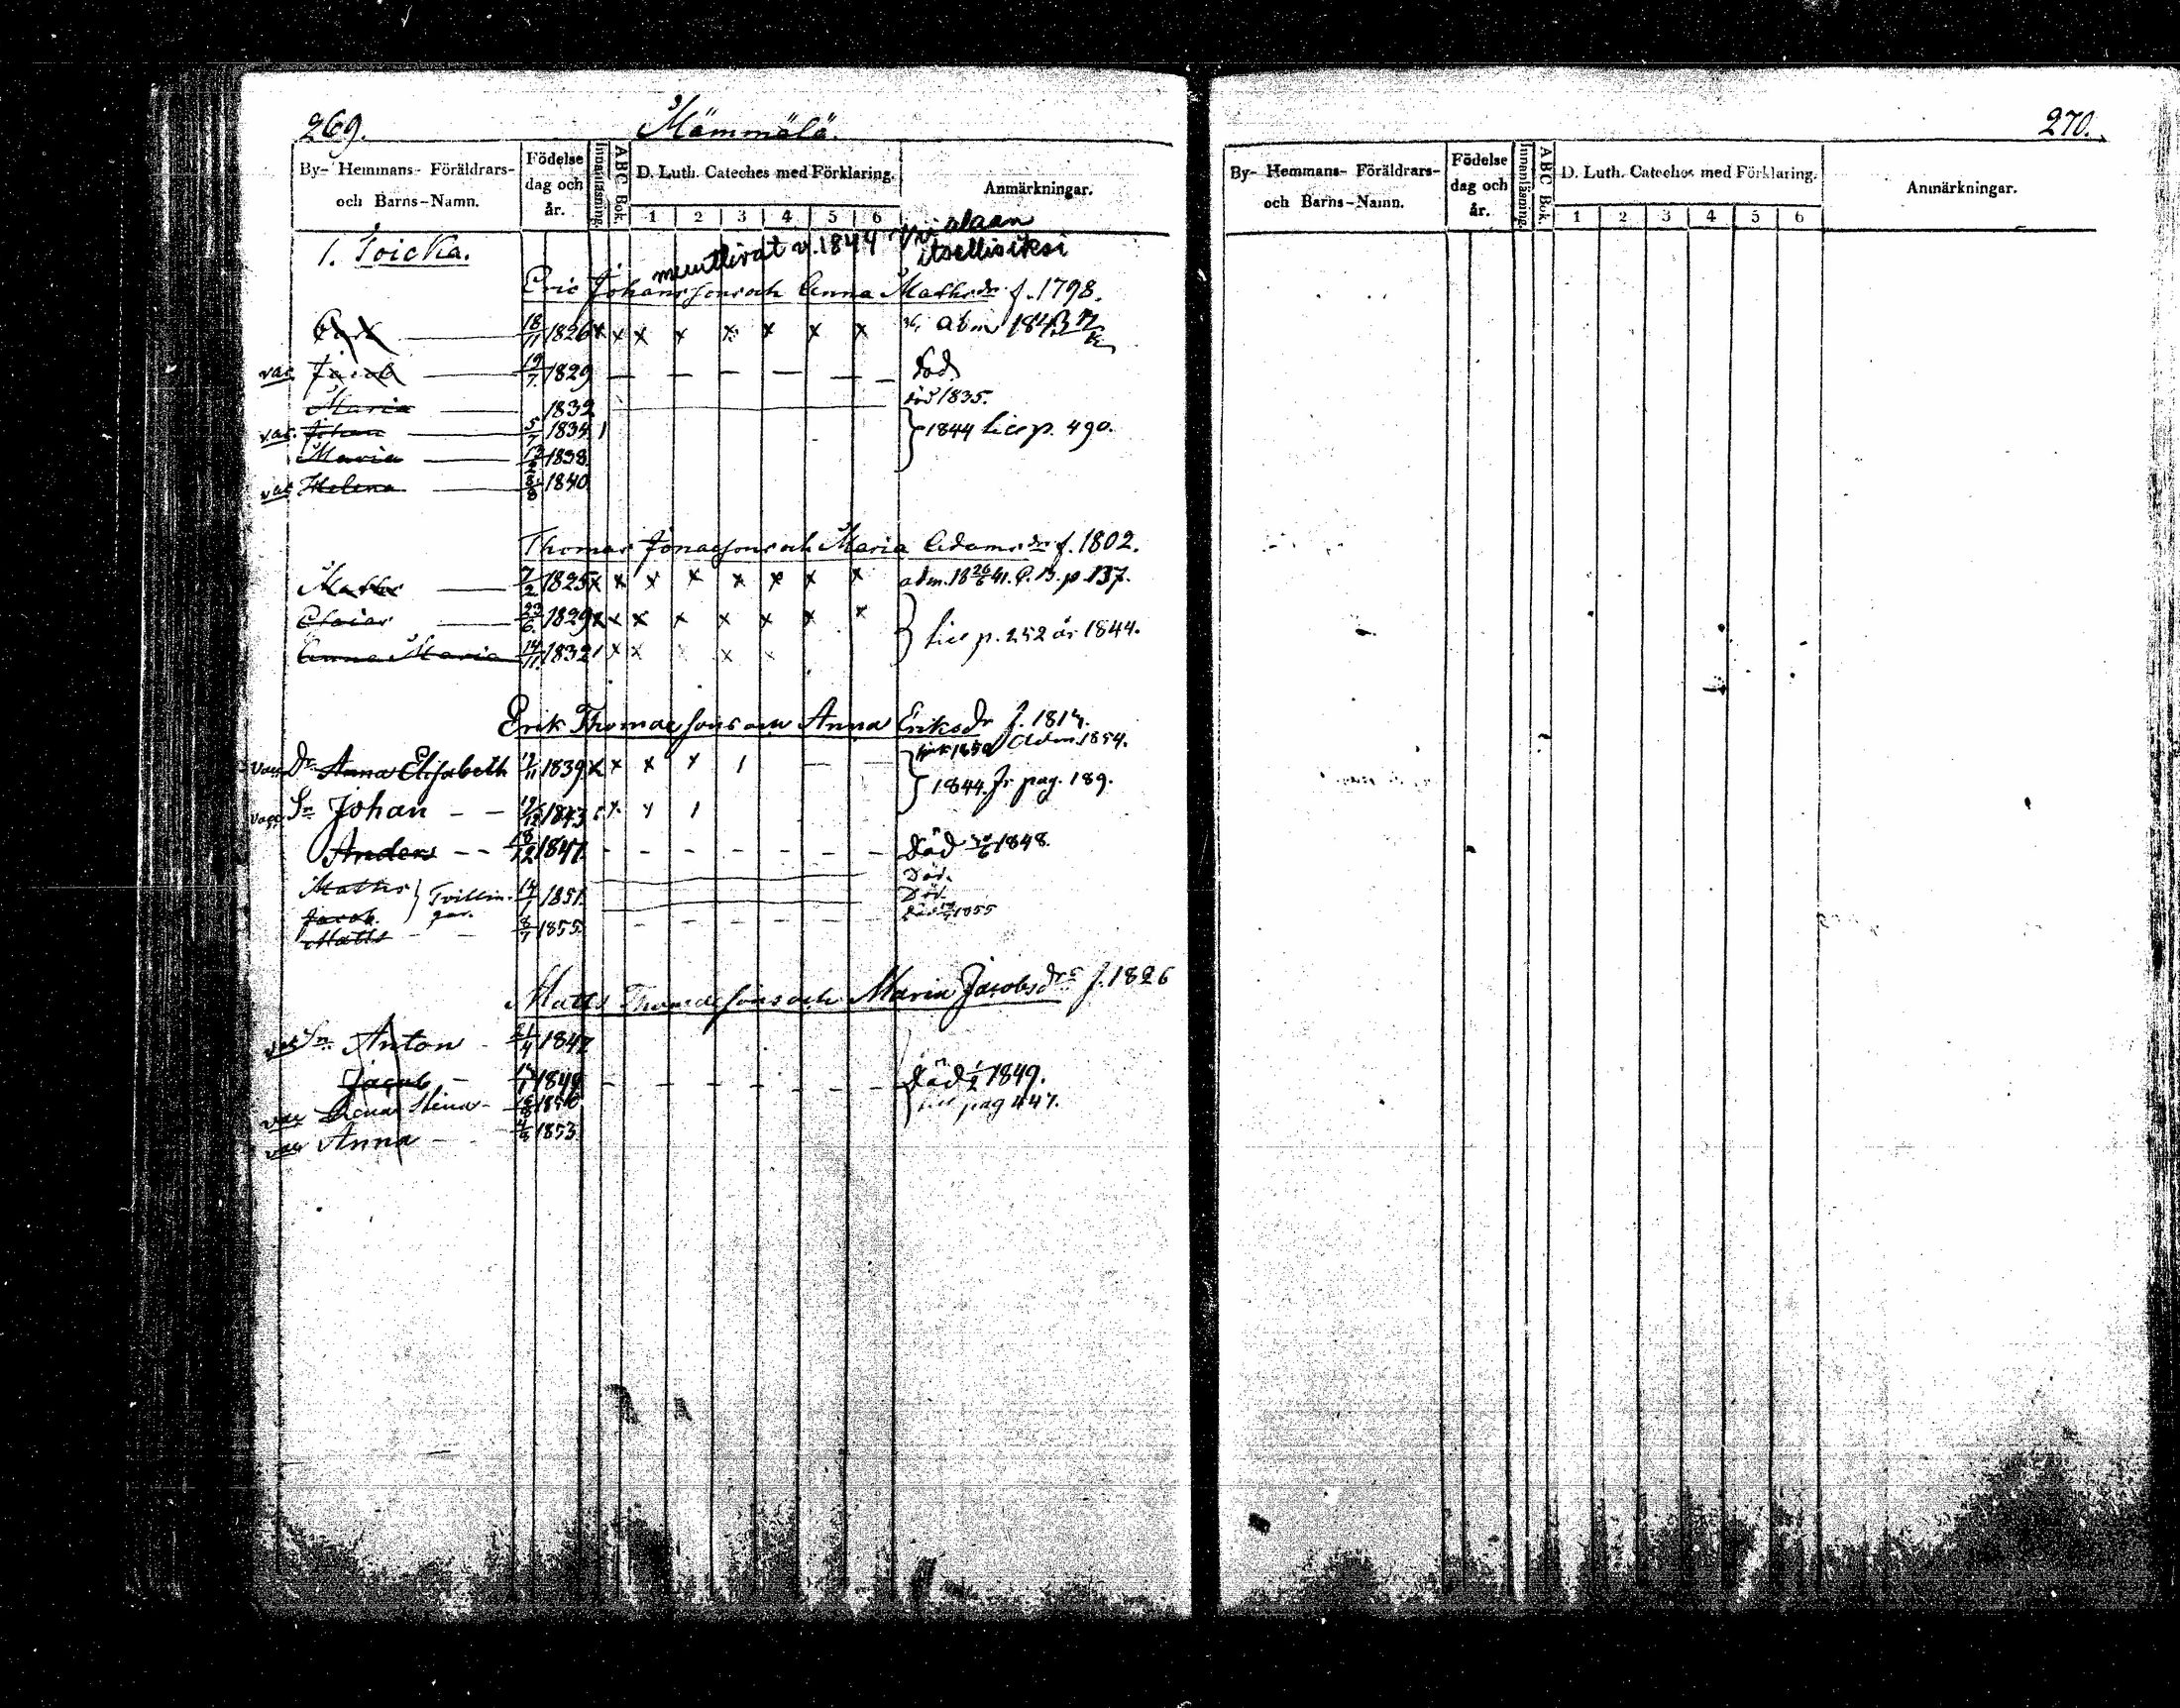 269.
Mämmälä.
By- Hemmans- Föräldrars- och Barns-Namn.
Födelse dag och år.
Innanläsning.
ABC Bok.
D. Luth. Cateches med Förklaring.
1 2 3 4 5 6
Anmärkningar.
1. Toicka.
muuttivat v. 1844 Vrialaan
itsellisiksi
Eric Johansson och Anna Mathsdr f. 1798.
18/11 1826 x x x x x x x adm 1843
vac Jacob 19/7 1829 — — — — — — död
Maria 1832 död 1835.
vac. Johan 5/7 1834 1 } 1844 till p. 490.
Maria 1838
vac Helena 1840
Thomas Jonasson och Maria Adamsdr f. 1802.
Matts 7/2 1825 x x x x x x x x adm. 18 26/6 41. p. 137.
Elaias 23/6 1829 x x x x x x x x } till p. 252 år 1844.
Anna Maria 14/11 1832 1 x x x
Erik Thomasson och Anna Eriksdr
Adm 1854.
Vac Dr Anna Elisabeth 1839 x x x x 1 — — } 1844. fr pag. 189.
Vacc. Sn Johan - - 1843
Anders - - 18/12 1847 - - - - - - - Död 1848.
Matts } Tvillin- 14/1 1851 Död.
Jacob. gar. Död.
Matts - - 8/7 1855 - - - - död 1855
Matts Thomasson och Maria Jacobsdr f. 1826
vac Sn Anton - 1847
Jacob - 1849 - - - - - - - Död 1/2 1849.
vac Lena Stina - 1850 till pag 447.
vac Anna - - 1853
270.
By- Hemmans- Föräldrars- och Barns-Namn.
Födelse dag och år.
Innanläsning.
ABC Bok.
D. Luth. Cateches med Förklaring.
1 2 3 4 5 6
Anmärkningar.